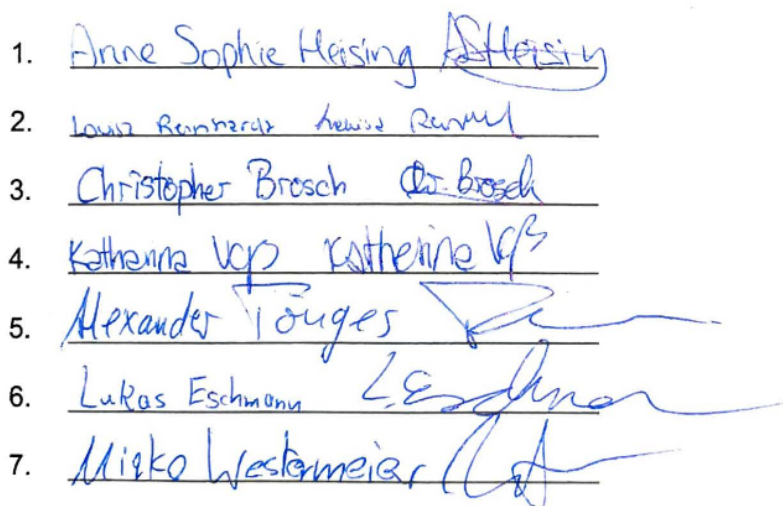 1. Anne Sophie Heising ASHeising
2. Louisa Reinhardt Louisa
3. Christopher Brosch Chr. Brosch
4. Katharina Voß Katharina Voß
5. Alexander Tönges
6. Lukas Eschmann L. Eschmann
7. Mirko Westermeier